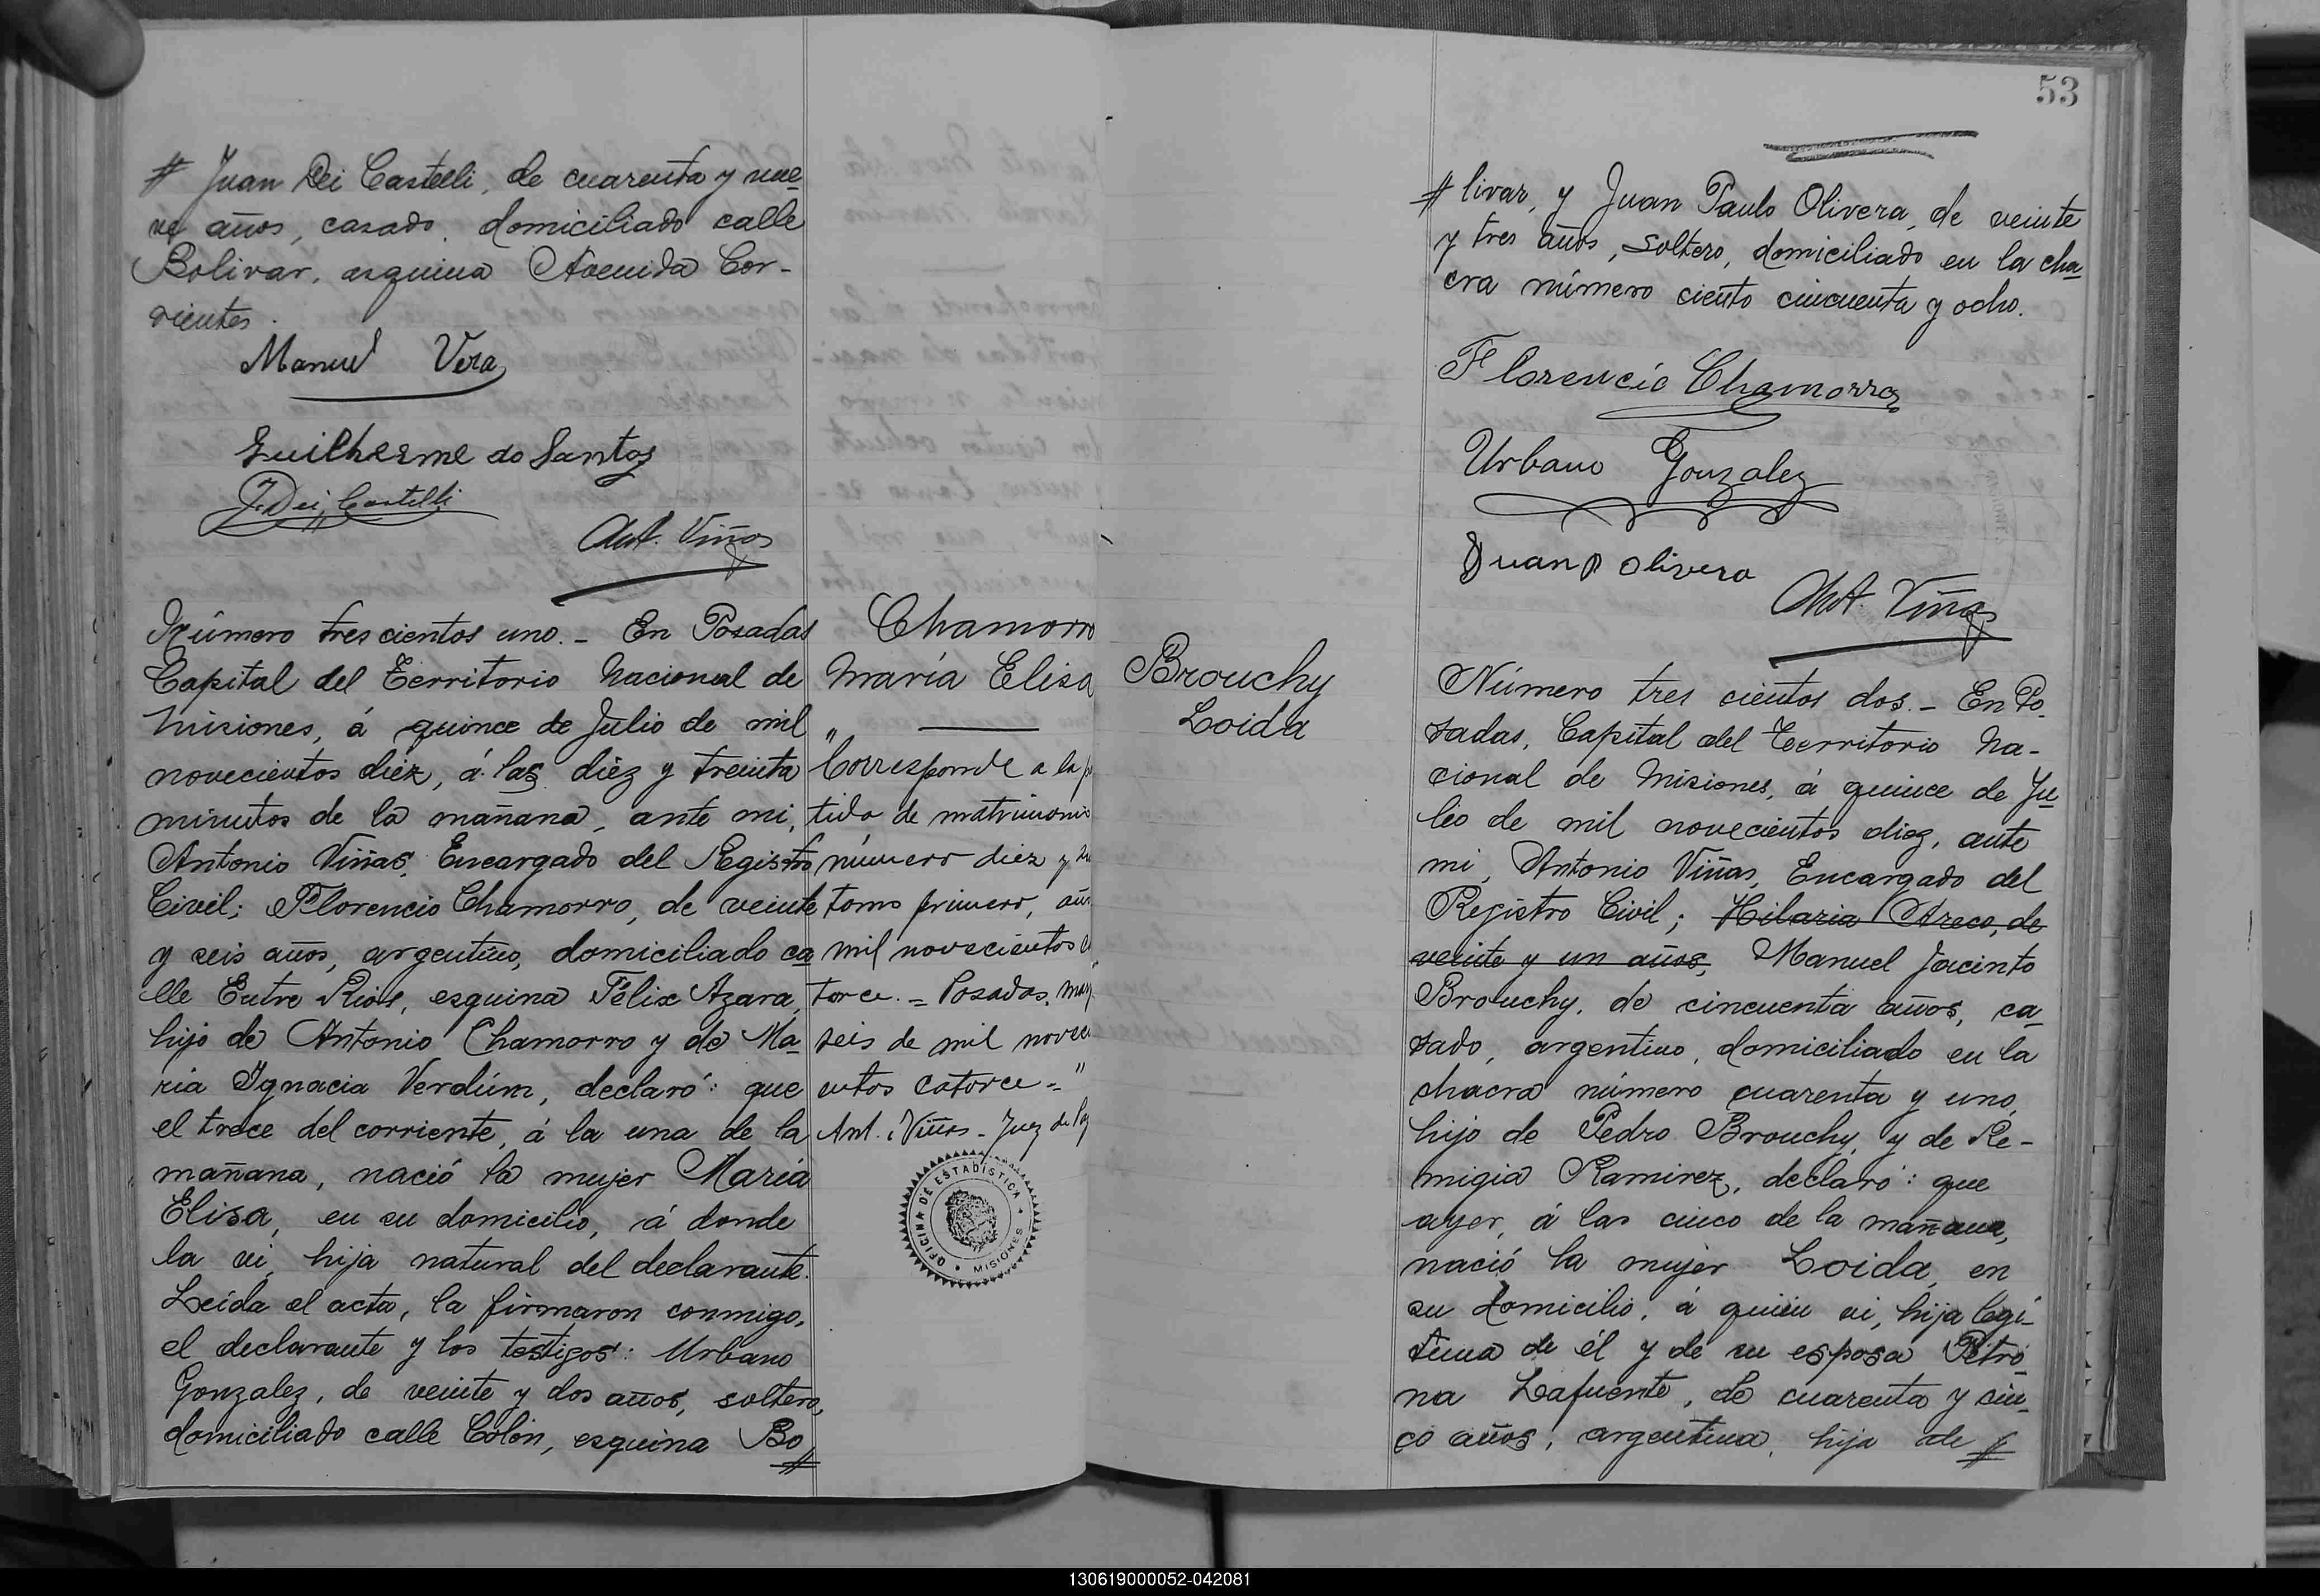 # Juan Dei Castelli, de cuarenta y nue
ve años, casado, domiciliado calle
Bolivar, esquina Avenida Cor-
rientes.
Manuel Vera
Guilherme do Santos
J. Dei Castelli
Ant. Viñas
Número tres cientos uno. - En Posadas
Capital del Territorio Nacional de
Misiones, á quince de Julio de mil
novecientos diéz, á las diéz y treinta
minutos de la mañana, ante mi,
Antonio Viñas, Encargado del Registro
Civil; Florencio Chamorro, de veinte
y seis años, argentino, domiciliado ca
lle Entre Rios, esquina Félix Azara,
hijo de Antonio Chamorro y de Ma
ria Ignacia Verdúm, declaró: que
el trece del corriente, á la una de la
mañana, nació la mujer María
Elisa, en su domicilio, á donde
la vi, hija natural del declarante.
Leída el acta, la firmaron conmigo,
el declarante y los testigos: Urbano
Gonzalez, de veinte y dos años, soltero,
domiciliado calle Colón, esquina Bo
#
Chamorro
María Elisa
" 
Corresponde a la
tida de matrimonio
número diez y
tomo primero,
mil novecientos
torce. = Posadas,
seis de mil noveci
entos catorce = "
Ant. Viñas - Juez de Paz
OFICINA DE ESTADISTICA
MISIONES
53
# livar, y Juan Paulo Olivera, de veinte
y tres años, soltero, domiciliado en la cha
cra número ciento cincuenta y ocho.
Florencio Chamorro
Urbano Gonzalez
Juan P Olivera
Ant. Viñas
Brouchy
Loida
Número tres cientos dos. - En Po
sadas, Capital del Territorio Na-
cional de Misiones, á quince de Ju
lio de mil novecientos diez, ante
mi, Antonio Viñas, Encargado del
Registro Civil; Hilaria Areco, de
veinte y un años, Manuel Jacinto
Brouchy, de cincuenta años, ca
sado, argentino, domiciliado en la
chacra número cuarenta y uno,
hijo de Pedro Brouchy, y de Re-
migia Ramirez, declaró: que
ayer, á las cinco de la mañana,
nació la mujer Loida, en
su domicilio, á quien vi, hija legi-
tima de él y de su esposa Petro
na Lafuente, de cuarenta y cin
co años, argentina, hija de #
130619000052-042081